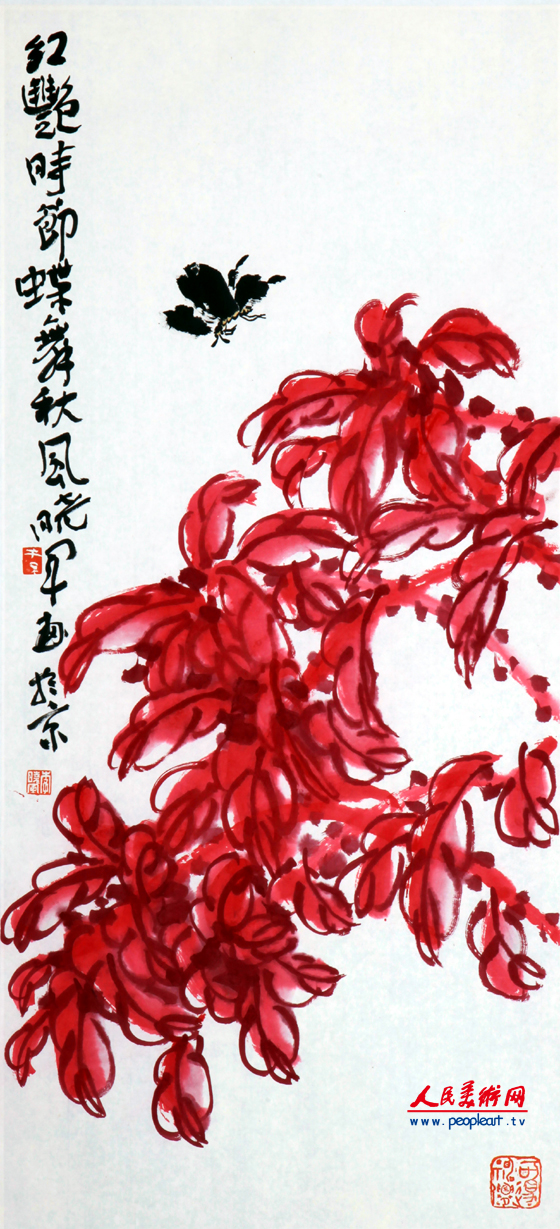 红艷時節蝶舞秋風晓军畫於京
人民美術网
www.peopleart.tv